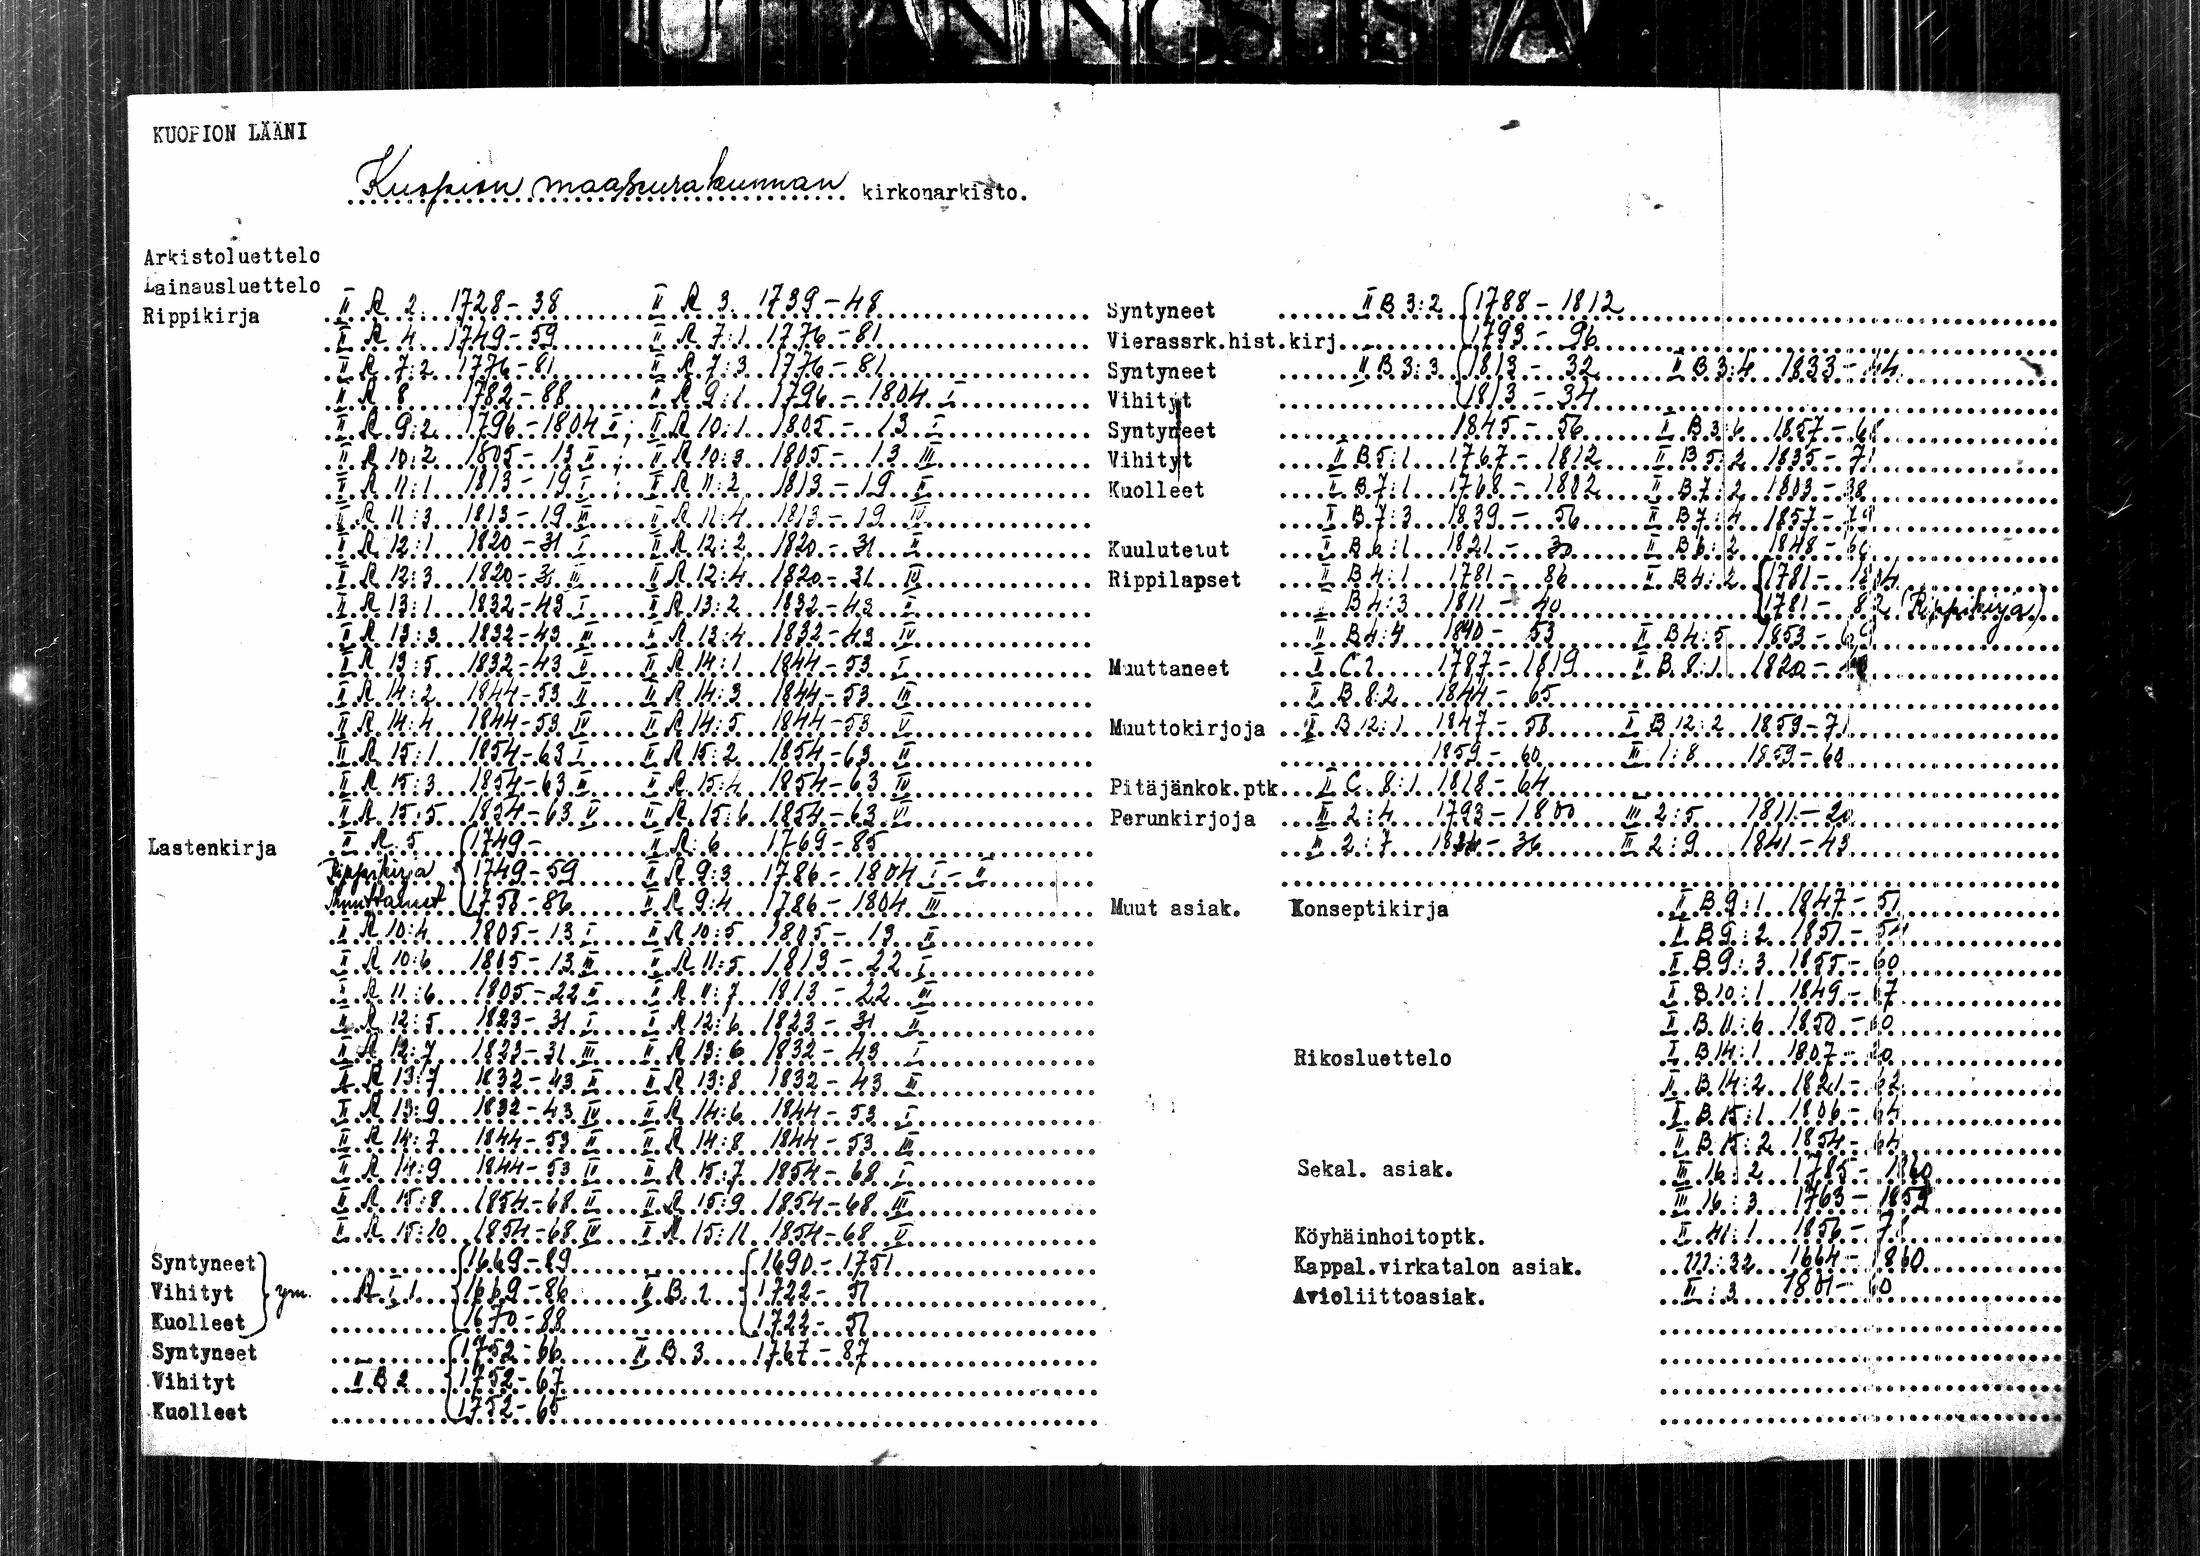 KUOPION LÄÄNI
Kuopion maaseurakunnan kirkonarkisto.
Arkistoluettelo
Lainausluettelo
Rippikirja II A 2 1728-38 II A 3 1739-48
II A 4 1749-59 II A 7:1 1776-81
II A 7:2 1776-81 II A 7:3 1776-81
II A 8 1782-88 II A 9:1 1796-1804 I
II A 9:2 1796-1804 II; II A 10:1 1805-13 I
II A 10:2 1805-13 II; II A 10:3 1805-13 III
II A 11:1 1813-19 I; II A 11:2 1813-19 II
II A 11:3 1813-19 III II A 11:4 1813-19 IV
II A 12:1 1820-31 I II A 12:2 1820-31 II
II A 12:3 1820-31 III II A 12:4 1820-31 IV
II A 13:1 1832-43 I II A 13:2 1832-43 II
II A 13:3 1832-43 III II A 13:4 1832-43 IV
II A 13:5 1832-43 V II A 14:1 1844-53 I
II A 14:2 1844-53 II II A 14:3 1844-53 III
II A 14:4 1844-53 IV II A 14:5 1844-53 V
II A 15:1 1854-63 I II A 15:2 1854-63 II
II A 15:3 1854-63 III II A 15:4 1854-63 IV
II A 15:5 1854-63 V II A 15:6 1854-63 VI
Lastenkirja II A 5 1749- II A 6 1769-85
Rippikirja 1749-59 II A 9:3 1786-1804 I-II
Muuttaneet 1758-86 II A 9:4 1786-1804 III
II A 10:4 1805-13 I II A 10:5 1805-13 II
II A 10:6 1805-13 III II A 11:5 1813-22 I
II A 11:6 1805-22 II II A 11:7 1813-22 III
II A 12:5 1823-31 I II A 12:6 1823-31 II
II A 12:7 1823-31 III II A 13:6 1832-43 I
II A 13:7 1832-43 II II A 13:8 1832-43 III
II A 13:9 1832-43 IV II A 14:6 1844-53 I
II A 14:7 1844-53 II II A 14:8 1844-53 III
II A 14:9 1844-53 IV II A 15:7 1854-68 I
II A 15:8 1854-68 II II A 15:9 1854-68 III
II A 15:10 1854-68 IV II A 15:11 1854-68 V
Syntyneet 1669-89 1690-1751
Vihityt ym. A I 1 1669-86 II B 1 1722-51
Kuolleet 1670-88 1722-51
Syntyneet 1752-66 II B 3 1767-87
Vihityt II B 2 1752-67
Kuolleet 1752-65
Syntyneet II B 3:2 1788-1812
Vierassrk.hist.kirj. 1793-96
Syntyneet II B 3:3 1813-32 II B 3:4 1833-44
Vihityt 1813-34
Syntyneet 1845-56 II B 3:6 1857-68
Vihityt II B 5:1 1767-1812 II B 5:2 1835-71
Kuolleet II B 7:1 1768-1802 II B 7:2 1803-38
II B 7:3 1839-56 II B 7:4 1857-
Kuulutetut II B 6:1 1821-30 II B 6:2 1848-
Rippilapset II B 4:1 1781-86 II B 4:2 1781-
II B 4:3 1811-40 1781-82 (Rippikirja)
II B 4:4 1840-53 II B 4:5 1853-
Muuttaneet II C 1 1787-1819 II B 8:1 1820-
II B 8:2 1844-65
Muuttokirjoja II B 12:1 1847-58 II B 12:2 1859-71
1859-60 III 1:8 1859-60
Pitäjänkok.ptk. II C 8:1 1818-64
Perunkirjoja III 2:4 1793-1800 III 2:5 1811-20
III 2:7 -36 III 2:9 1841-43
Muut asiak. Konseptikirja II B 9:1 1847-51
II B 9:2 1851-54
II B 9:3 1855-60
II B 10:1 1849-67
II B 11:6 1850-60
Rikosluettelo II B 14:1 1807-20
II B 14:2 1821-62
II B 15:1 1806-64
II B 15:2 1854-64
Sekal. asiak. III 16:2 1785-1860
III 16:3 1763-1859
Köyhäinhoitoptk. II 41:1 1856-78
Kappal.virkatalon asiak. III:32 1664-1860
Avioliittoasiak. II:3 1801-60